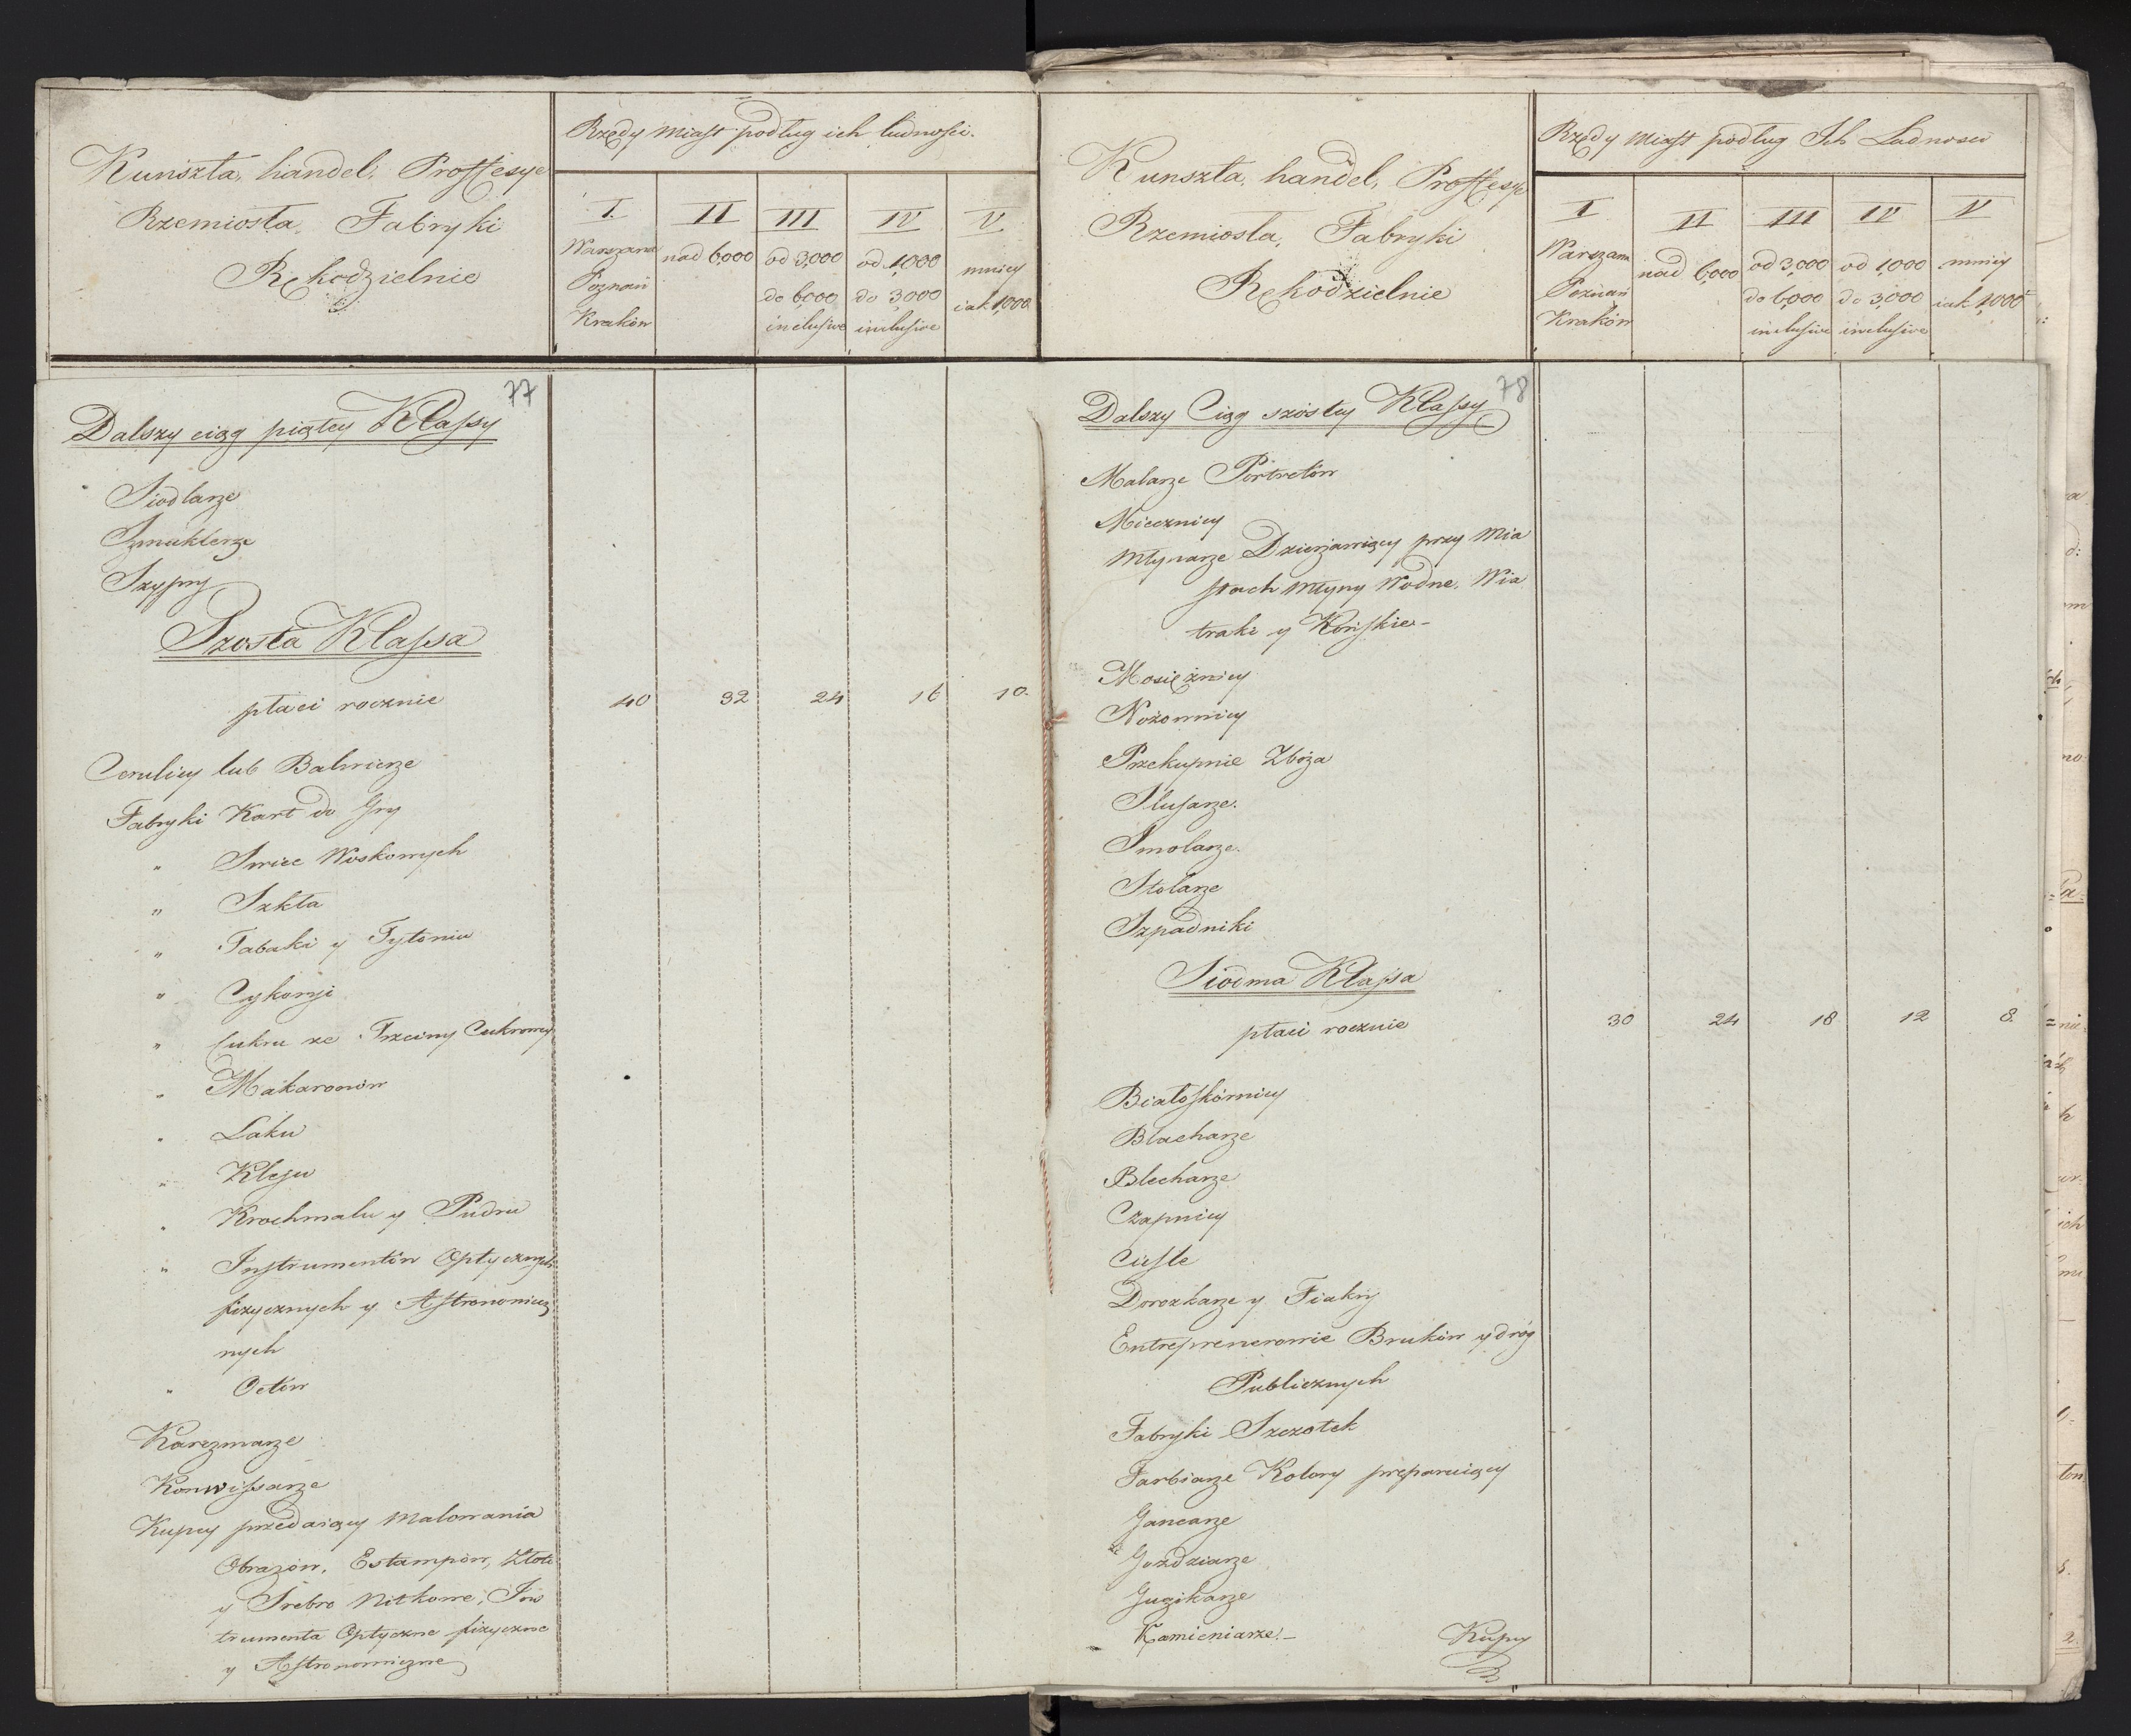 Kunszta, handel, Proffesye
Rzemiosła, Fabryki
Rękodzielnie
Rzędy miast podług ich ludnosci.
I.
II
III
IV
V
Warszawa
Poznań
Kraków
nad 6,000
od 3,000
do 6,000
inclusive
od 1,000
do 3,000
inclusive
mniey
iak 1,000
77
Dalszy ciąg piątey Klassy
Siodlarze
Szmuklerze
Szypry
Szosta Klassa
płaci rocznie 40 32 24 16 10.
Cerulicy lub Balwierze
Fabryki Kart do Gry
" Swiec Woskowych
" Szkła
" Tabaki y Tytoniu
" Cykoryi
" Cukru ze Trzciny Cukrowey
" Makaronów
" Laku
" Kleju
" Krochmalu y Pudru
" Instrumentów Optycznych
fizycznych y Astronomicz
nych
" Octów
Karczmarze
Konwissarze
Kupcy przedaiący Malowania
Obrazów, Estampów, Złoto
y Srebro Nitkowe, Ins
trumenta Optyczne fizyczne
y Astronomiczne
Kunszta, handel, Proffesye
Rzemiosła, Fabryki
Rękodzielnie
Rzędy miast podług Ich Ludnosci
I
II
III
IV
V
Warszawa
Poznań
Kraków
nad 6,000
od 3,000
do 6,000
inclusive
od 1,000
do 3,000
inclusive
mniey
iak 1,000
78
Dalszy Ciąg szóstey Klassy
Malarze Portretów
Miecznicy
Młynarze Dzierżawiący przy Mia
stach Młyny Wodne, Wia
traki y Końskie –
Mosiężnicy
Nożownicy
Przekupnie Zboża
Slusarze.
Smolarze.
Stolarze
Szpadniki
Siodma Klassa
płaci rocznie 30 24 18 12 8.
Białoskórnicy
Blacharze
Blecharze
Czapnicy
Cieśle
Dorożkarze y Fiakry
Entreprenerowie Bruków y dróg
Publicznych
Fabryki Szczotek
Farbiarze Kolory preparuiący
Garncarze
Goździarze
Guzikarze
Kamieniarze. –
Kupcy